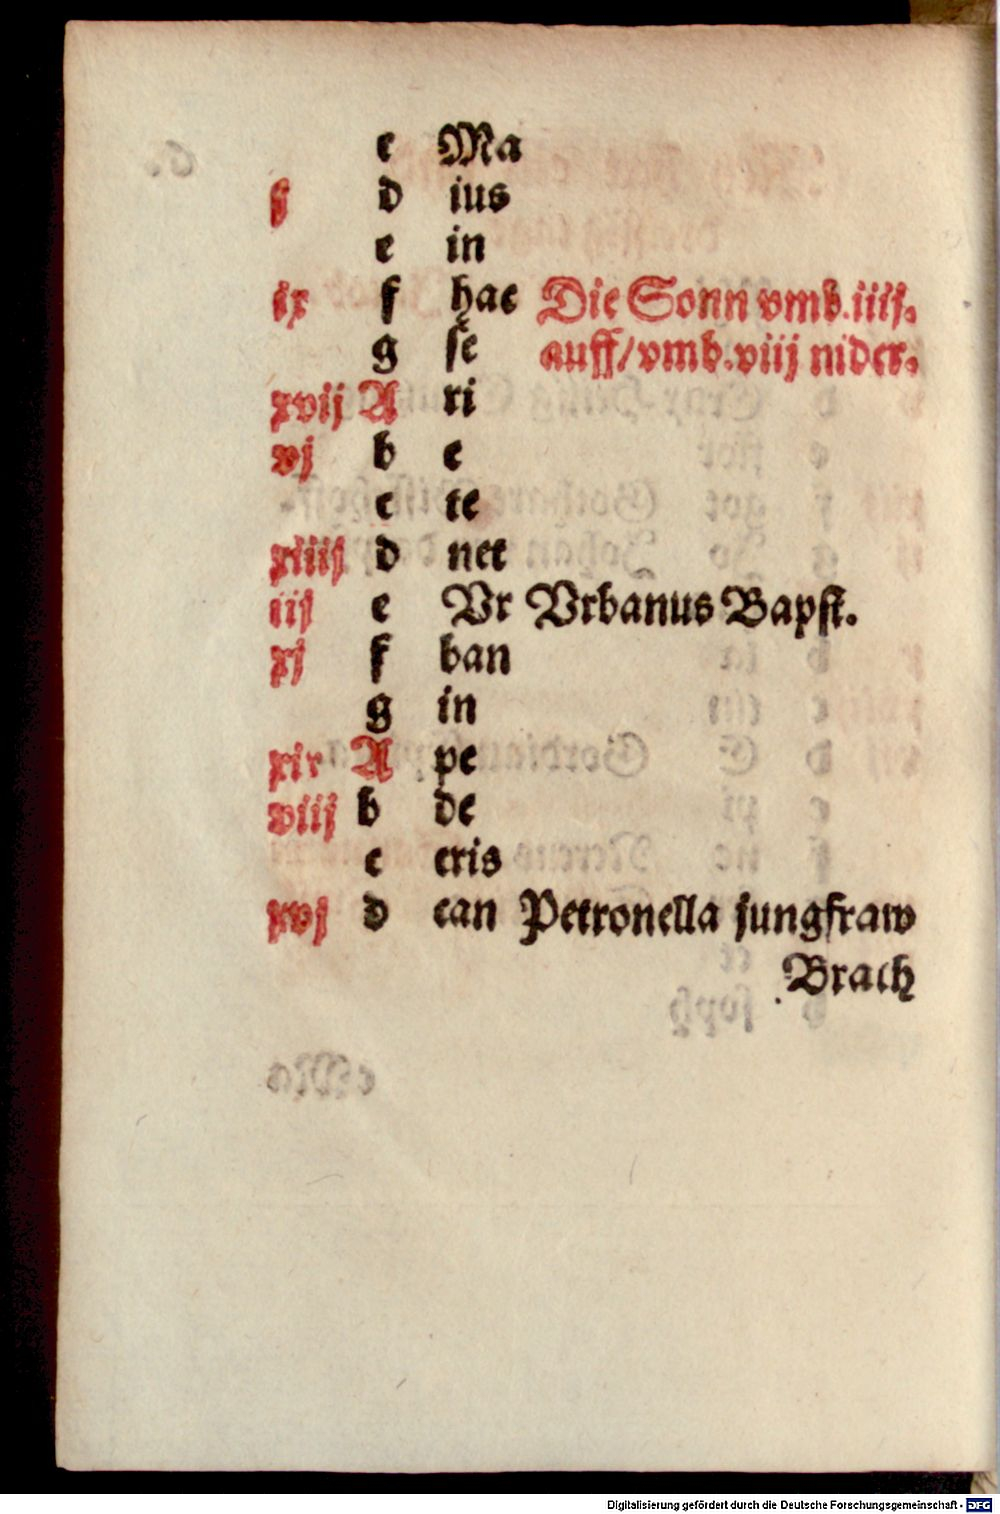 c Ma
ij d ius
e in
ix f hac Die Sonn vmb.iiij.
g sē auff/vmb.viij nider.
xvij A ri
vj b e
c te
xiiij d net
iij e Vr Vrbanus Bapst.
xj f ban
g in
xix A pe
viij b de
c cris
xvj d can Petronella jungfraw
Brach
Digitalisierung gefördert durch die Deutsche Forschungsgemeinschaft - DFG